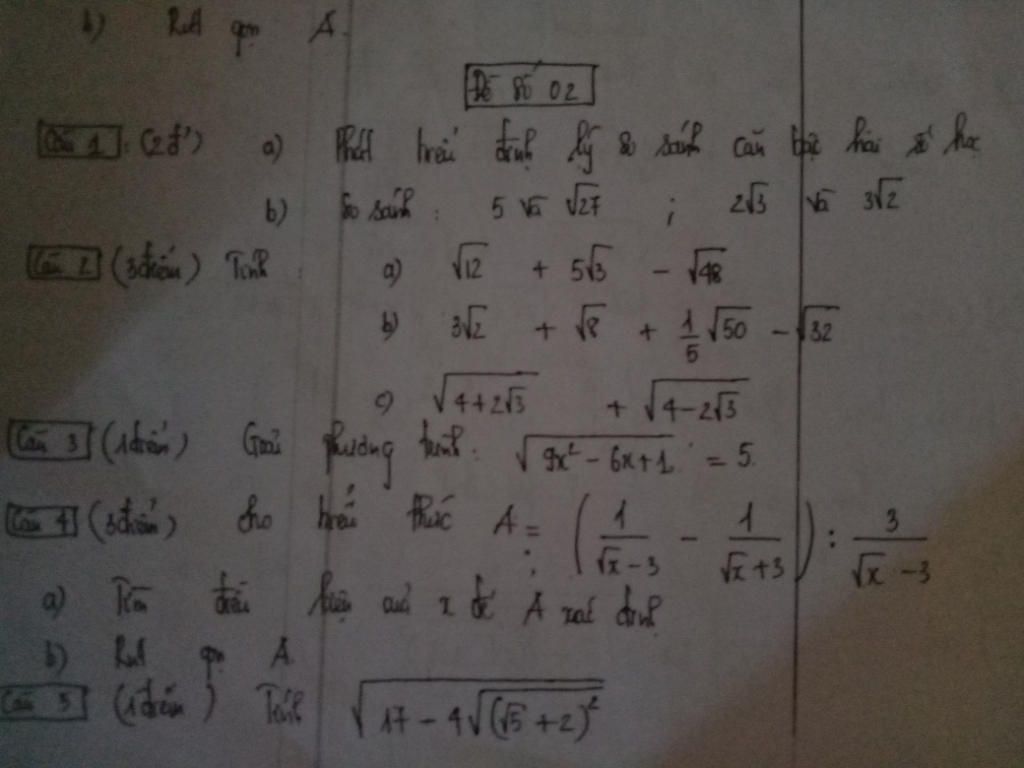 b) Rút gọn A.
Đề số 02
Câu 1: (2đ') a) Phát biểu định lý so sánh căn bậc hai số học
b) So sánh: 5 và √27 ; 2√3 và 3√2
Câu 2 (3điểm) Tính: a) √12 + 5√3 - √48
b) 3√2 + √8 + 1/5 √50 - √32
c) √(4+2√3) + √(4-2√3)
Câu 3 (1điểm) Giải phương trình: √(9x² - 6x + 1) = 5.
Câu 4 (3điểm) cho biểu thức A = (1/(√x - 3) - 1/(√x + 3)) : 3/(√x - 3)
a) Tìm điều kiện của x để A xác định
b) Rút gọn A
Câu 5 (1điểm) Tính √(17 - 4√((√5 + 2)²))